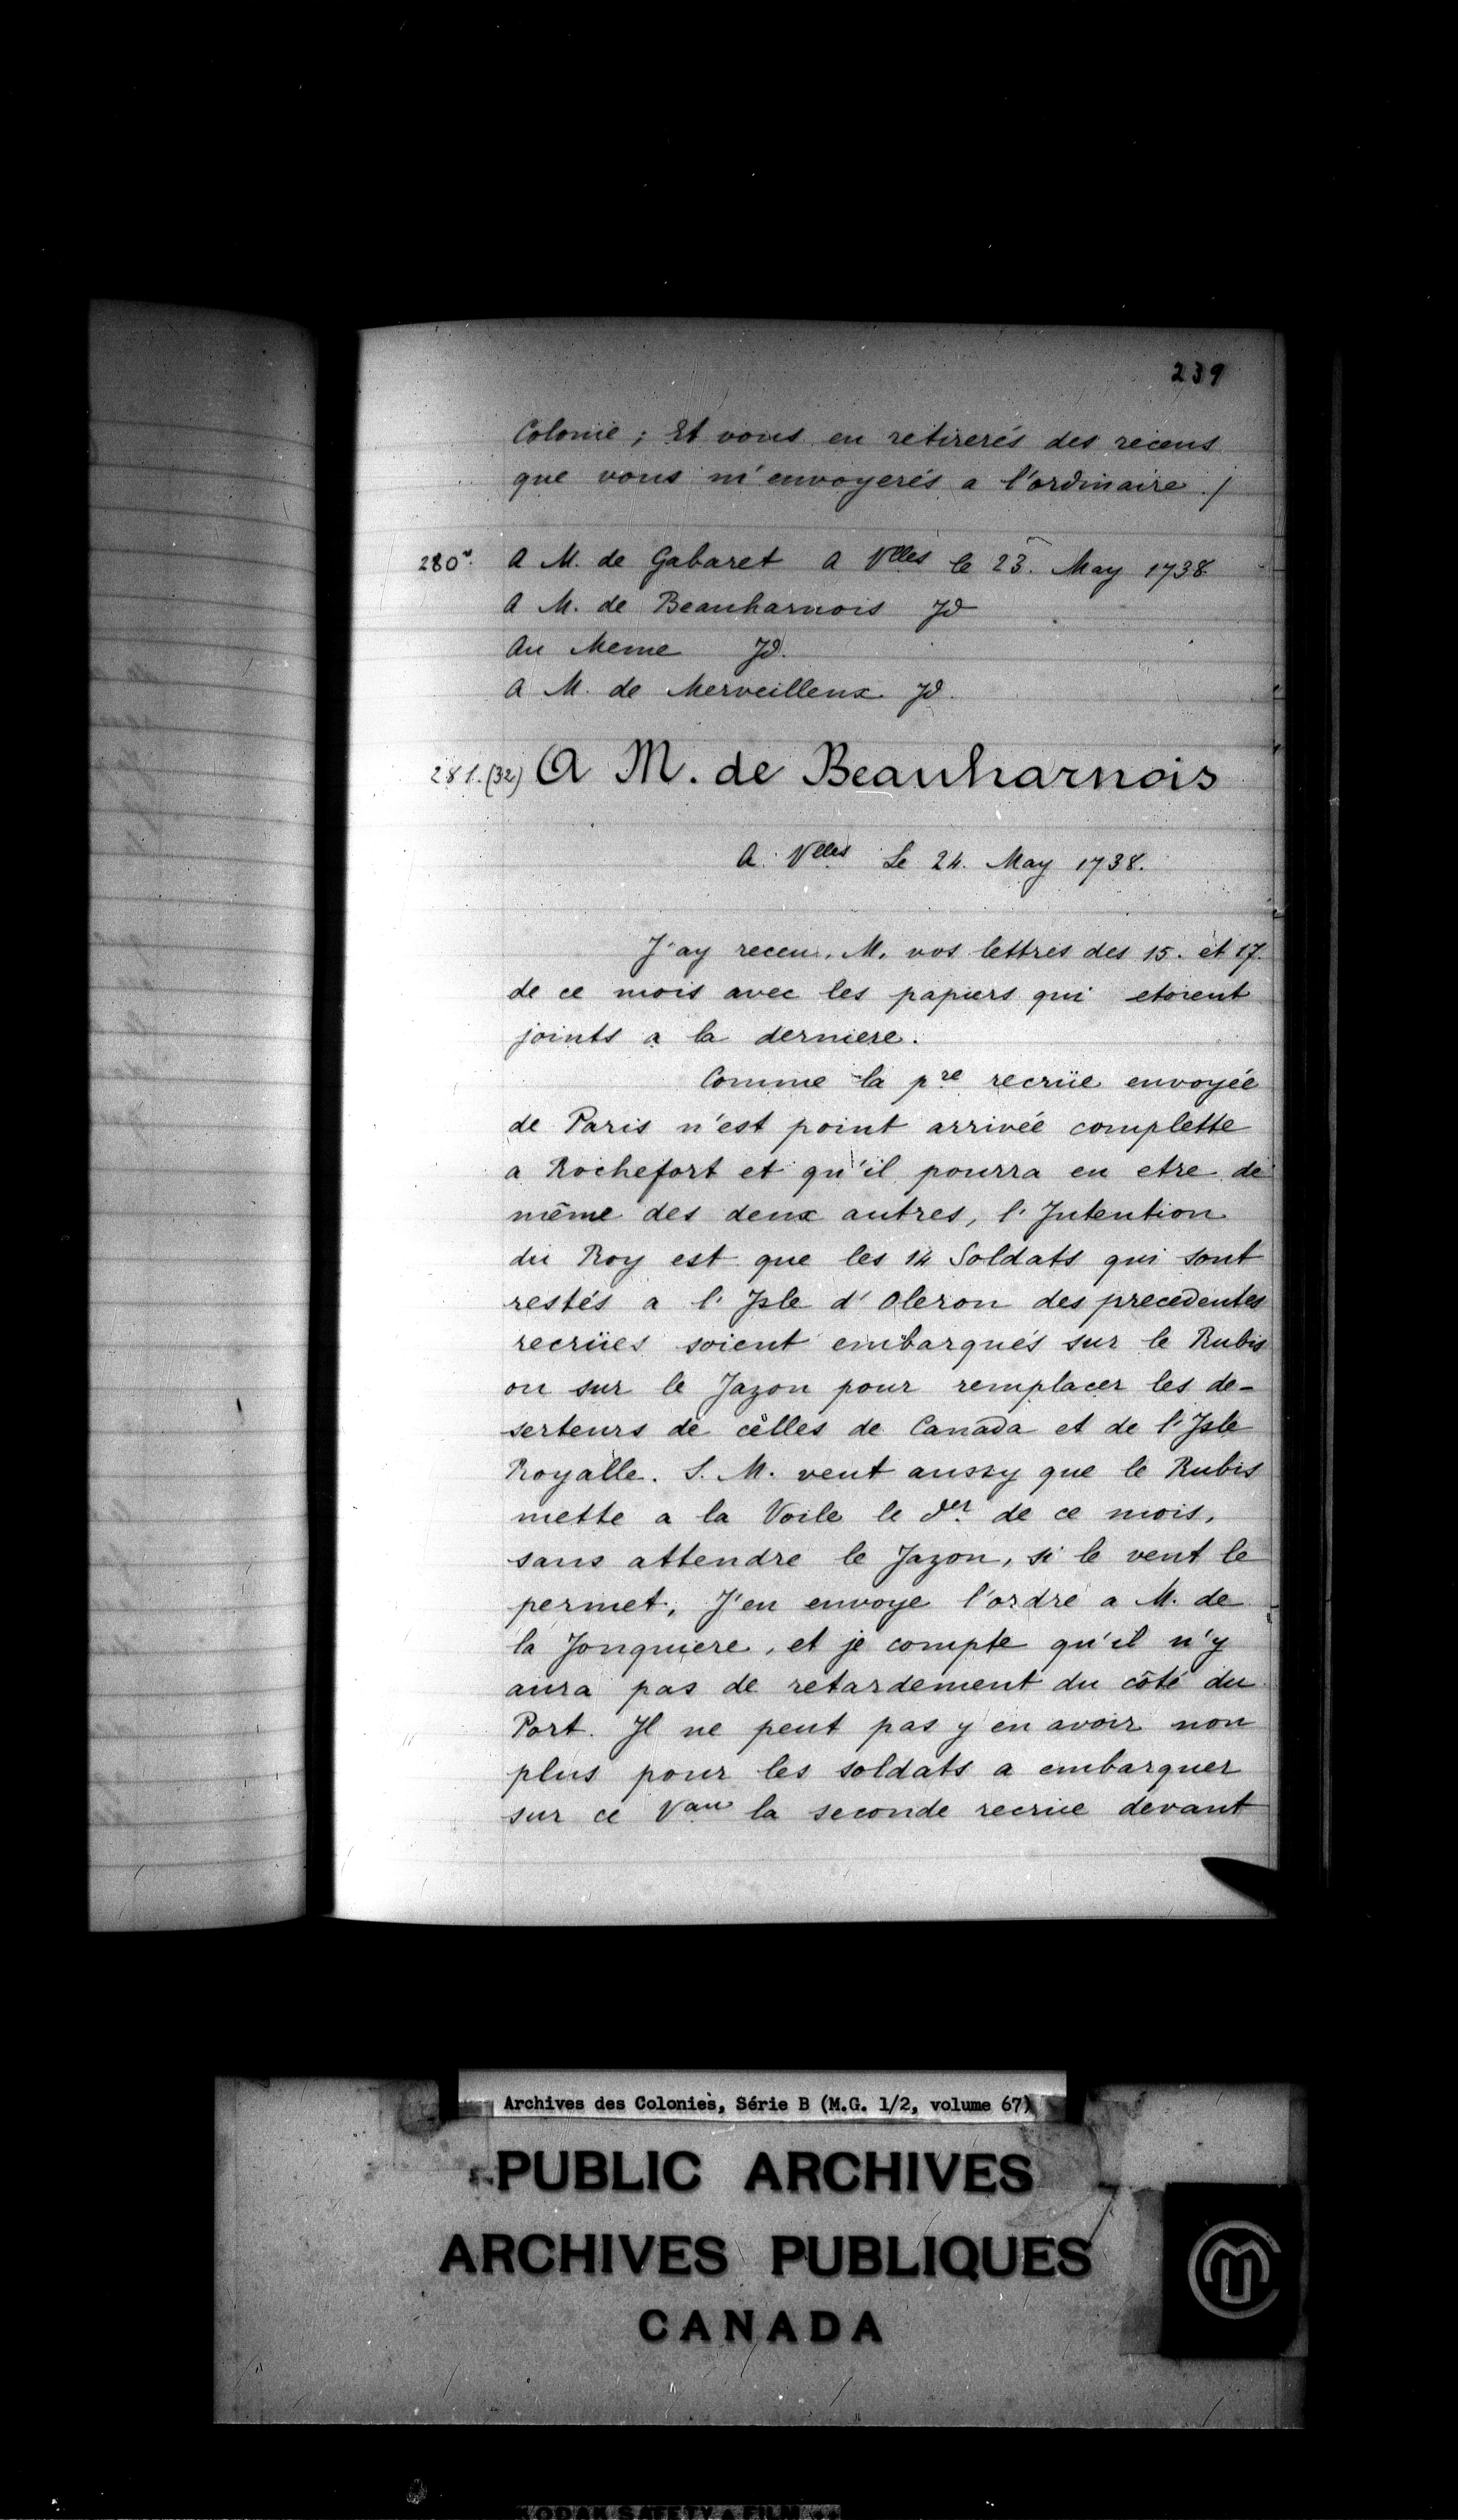 239
Colonie ; Et vous en retirerés des receus
que vous m'envoyerés a l'ordinaire ./
280v. A M. de Gabaret A Vlles le 23. May 1738
A M. de Beauharnois Jd
Au Meme Jd.
A M. de Merveilleux Jd.
281.(32) A M. de Beauharnois
A Vlles Le 24. May 1738.
J'ay receu, M, vos lettres des 15. et 17.
de ce mois avec les papiers qui etoient
joints a la derniere.
Comme la pre recrüe envoyée
de Paris n'est point arrivée complette
a Rochefort et qu'il pourra en etre de
même des deux autres, l'Intention
du Roy est que les 14 Soldats qui sont
restés a l'Isle d'Oleron des precedentes
recrües soient embarqués sur le Rubis
ou sur le Jazon pour remplacer les de-
serteurs de celles de Canada et de l'Isle
Royalle. S. M. veut aussy que le Rubis
mette a la Voile le der de ce mois,
sans attendre le Jazon, si le vent le
permet, J'en envoye l'ordre a M. de
la Jonquiere, et je compte qu'il n'y
aura pas de retardement du côté du
Port. Il ne peut pas y en avoir non
plus pour les soldats a embarquer
sur ce Vau la seconde recrüe devant
Archives des Colonies, Série B (M.G. 1/2, volume 67)
PUBLIC ARCHIVES
ARCHIVES PUBLIQUES
CANADA
KODAK SAFETY FILM